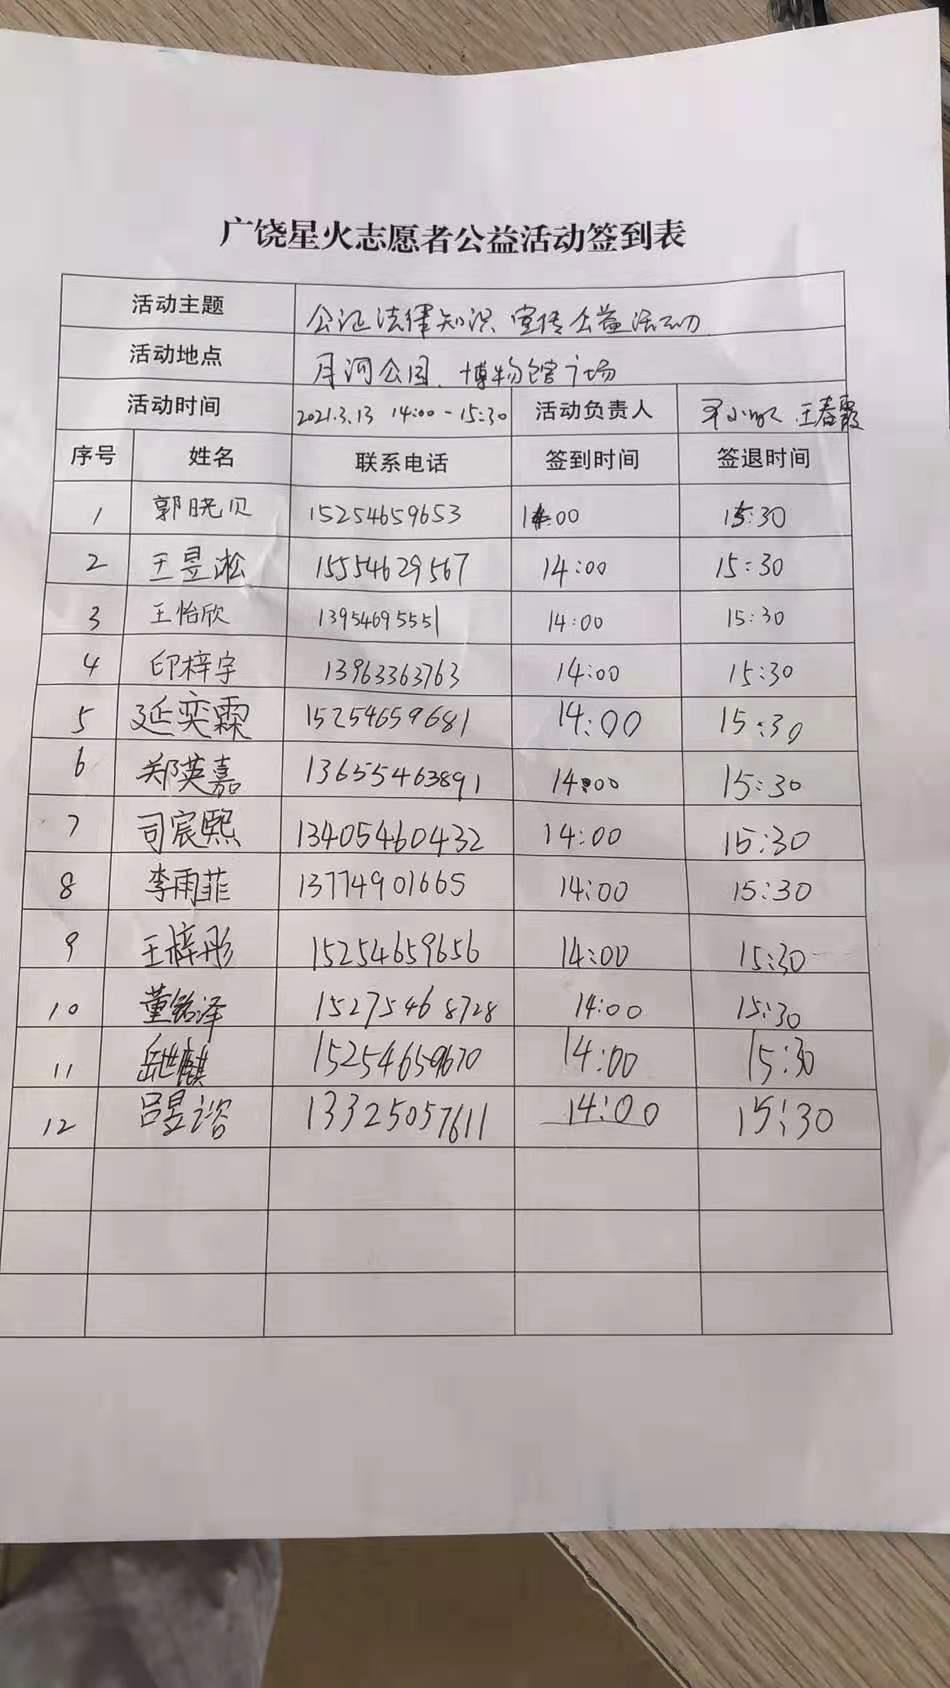 广饶星火志愿者公益活动签到表
活动主题 公证法律知识宣传公益活动
活动地点 月河公园、博物馆广场
活动时间 2021.3.13 14:00-15:30 活动负责人 王春霞
序号 姓名 联系电话 签到时间 签退时间
1 郭晓贝 15254659653 14:00 15:30
2 王昱淞 15554629567 14:00 15:30
3 王怡欣 13954695551 14:00 15:30
4 印梓宇 13963363763 14:00 15:30
5 延奕霖 15254659681 14:00 15:30
6 郑英嘉 13655463891 14:00 15:30
7 司宸熙 13405460432 14:00 15:30
8 李雨菲 13774901665 14:00 15:30
9 王梓彤 15254659656 14:00 15:30
10 董铭泽 15275468728 14:00 15:30
11 岳世麒 15254659670 14:00 15:30
12 吕昱谘 13325057611 14:00 15:30